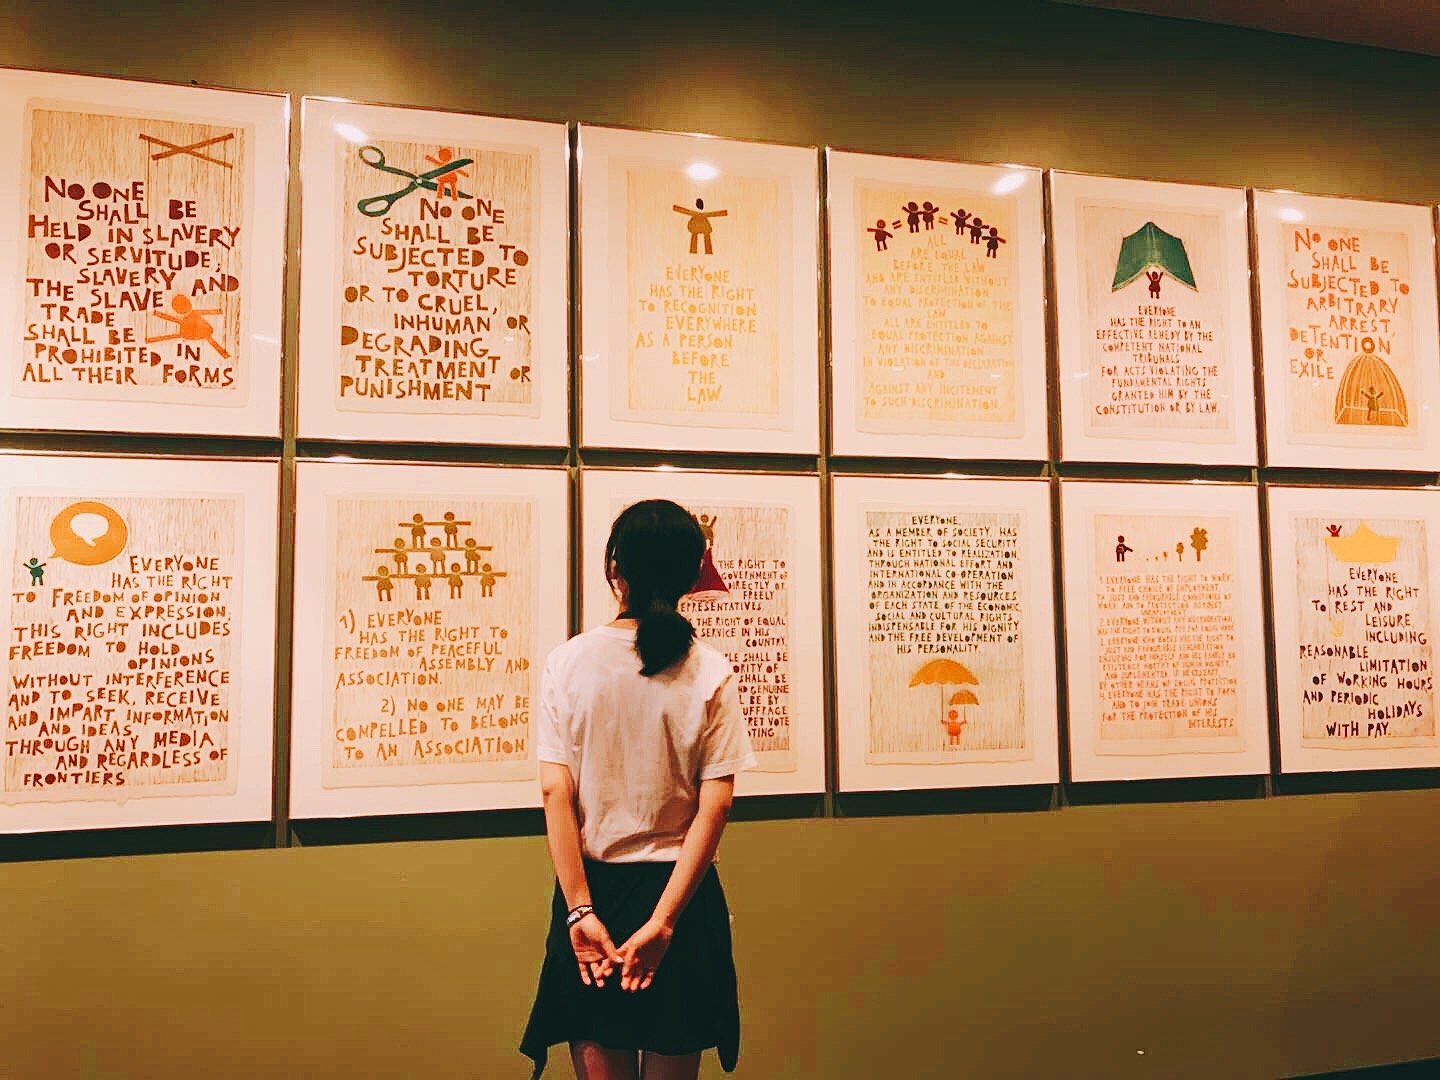 NO ONE
SHALL BE
HELD IN SLAVERY
OR SERVITUDE;
SLAVERY AND
THE SLAVE
TRADE
SHALL BE
PROHIBITED IN
ALL THEIR FORMS
NO ONE
SHALL BE
SUBJECTED TO
TORTURE
OR TO CRUEL,
INHUMAN OR
DEGRADING
TREATMENT OR
PUNISHMENT
EVERYONE
HAS THE RIGHT
TO RECOGNITION
EVERYWHERE
AS A PERSON
BEFORE
THE
LAW
ALL
ARE EQUAL
BEFORE THE LAW
AND ARE ENTITLED WITHOUT
ANY DISCRIMINATION
TO EQUAL PROTECTION OF THE
LAW
ALL ARE ENTITLED TO
EQUAL PROTECTION AGAINST
ANY DISCRIMINATION
IN VIOLATION OF THIS DECLARATION
AND
AGAINST ANY INCITEMENT
TO SUCH DISCRIMINATION.
EVERYONE
HAS THE RIGHT TO AN
EFFECTIVE REMEDY BY THE
COMPETENT NATIONAL
TRIBUNALS
FOR ACTS VIOLATING THE
FUNDAMENTAL RIGHTS
GRANTED HIM BY THE
CONSTITUTION OR BY LAW.
NO ONE
SHALL BE
SUBJECTED TO
ARBITRARY
ARREST,
DETENTION
OR
EXILE
EVERYONE
HAS THE RIGHT
TO FREEDOM OF OPINION
AND EXPRESSION;
THIS RIGHT INCLUDES
FREEDOM TO HOLD
OPINIONS
WITHOUT INTERFERENCE
AND TO SEEK, RECEIVE
AND IMPART INFORMATION
AND IDEAS,
THROUGH ANY MEDIA
AND REGARDLESS OF
FRONTIERS
1) EVERYONE
HAS THE RIGHT TO
FREEDOM OF PEACEFUL
ASSEMBLY AND
ASSOCIATION.
2) NO ONE MAY BE
COMPELLED TO BELONG
TO AN ASSOCIATION
THE RIGHT TO
GOVERNMENT OF
DIRECTLY OR
FREELY
REPRESENTATIVES.
THE RIGHT OF EQUAL
SERVICE IN HIS
COUNTRY.
SHALL BE
OF
SHALL BE
GENUINE
BE BY
VOTE
EVERYONE,
AS A MEMBER OF SOCIETY, HAS
THE RIGHT TO SOCIAL SECURITY
AND IS ENTITLED TO REALIZATION,
THROUGH NATIONAL EFFORT AND
INTERNATIONAL CO-OPERATION
AND IN ACCORDANCE WITH THE
ORGANIZATION AND RESOURCES
OF EACH STATE, OF THE ECONOMIC,
SOCIAL AND CULTURAL RIGHTS
INDISPENSABLE FOR HIS DIGNITY
AND THE FREE DEVELOPMENT OF
HIS PERSONALITY.
1. EVERYONE HAS THE RIGHT TO WORK,
TO FREE CHOICE OF EMPLOYMENT,
TO JUST AND FAVOURABLE CONDITIONS OF
WORK AND TO PROTECTION AGAINST
UNEMPLOYMENT
2. EVERYONE WITHOUT ANY DISCRIMINATION,
HAS THE RIGHT TO EQUAL PAY FOR EQUAL WORK
3. EVERYONE WHO WORKS HAS THE RIGHT TO
JUST AND FAVOURABLE REMUNERATION
ENSURING FOR HIMSELF AND HIS FAMILY AN
EXISTENCE WORTHY OF HUMAN DIGNITY,
AND SUPPLEMENTED, IF NECESSARY,
BY OTHER MEANS OF SOCIAL PROTECTION
4. EVERYONE HAS THE RIGHT TO FORM
AND TO JOIN TRADE UNIONS
FOR THE PROTECTION OF HIS
INTERESTS
EVERYONE
HAS THE RIGHT
TO REST AND
LEISURE
INCLUDING
REASONABLE
LIMITATION
OF WORKING HOURS
AND PERIODIC
HOLIDAYS
WITH PAY.